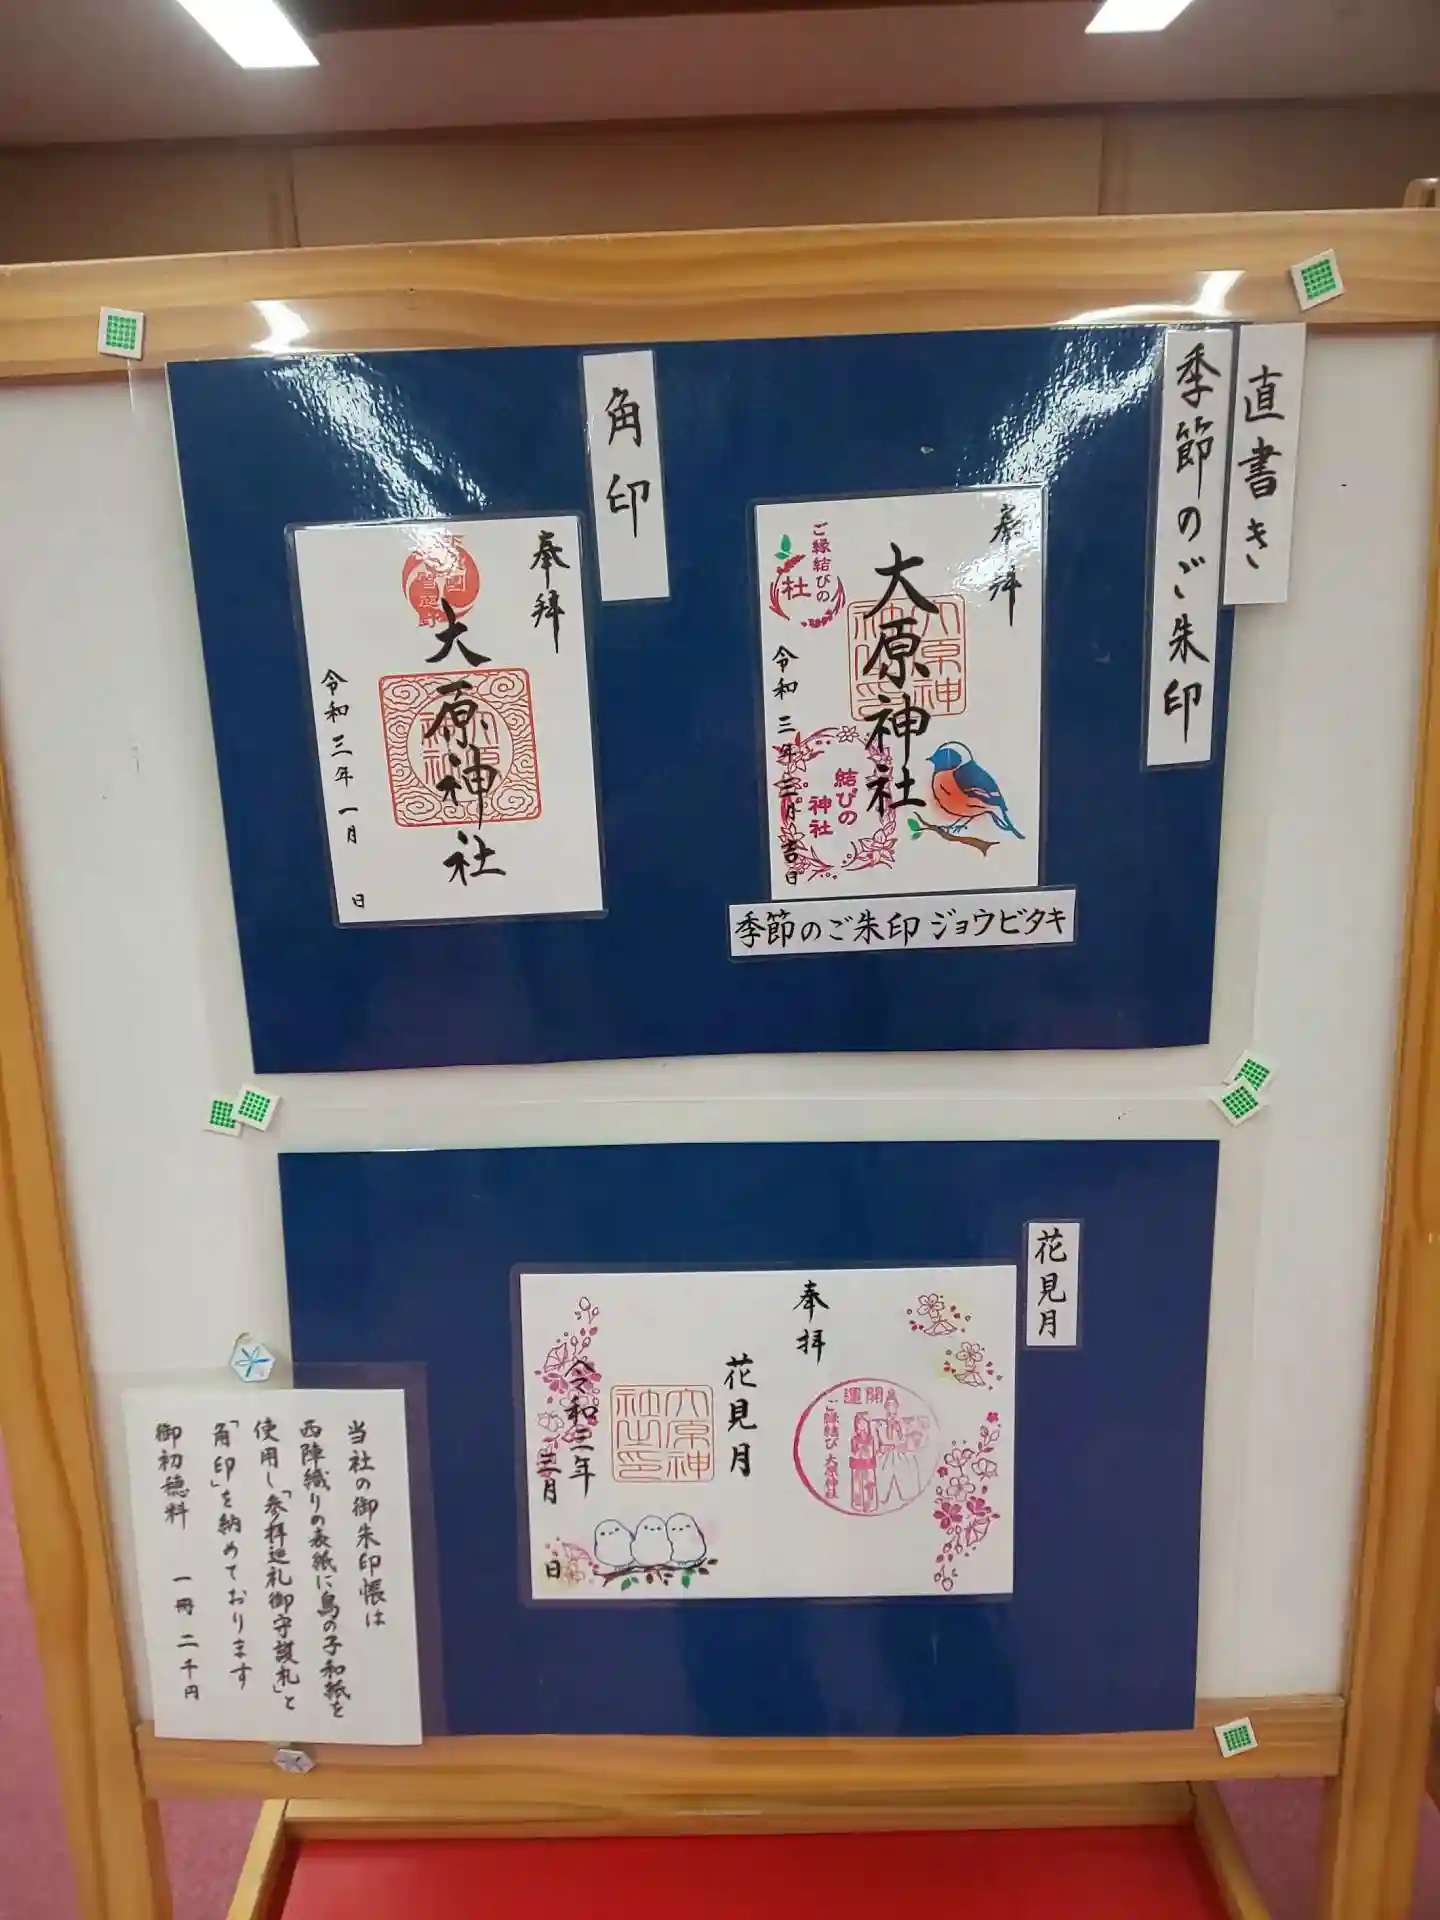 直書き
季節のご朱印
奉拝
大原神社
ご縁結びの
杜
結びの
神社
令和三年三月吉日
季節のご朱印 ジョウビタキ
角印
奉拝
大原神社
令和三年一月 日
花見月
奉拝
開運
ご縁結び 大原神社
花見月
大原神
社之印
令和三年
三月 日
当社の御朱印帳は
西陣織りの表紙に鳥の子和紙を
使用し「参拝巡礼御守護札」と
「角印」を納めております
御初穂料 一冊 二千円